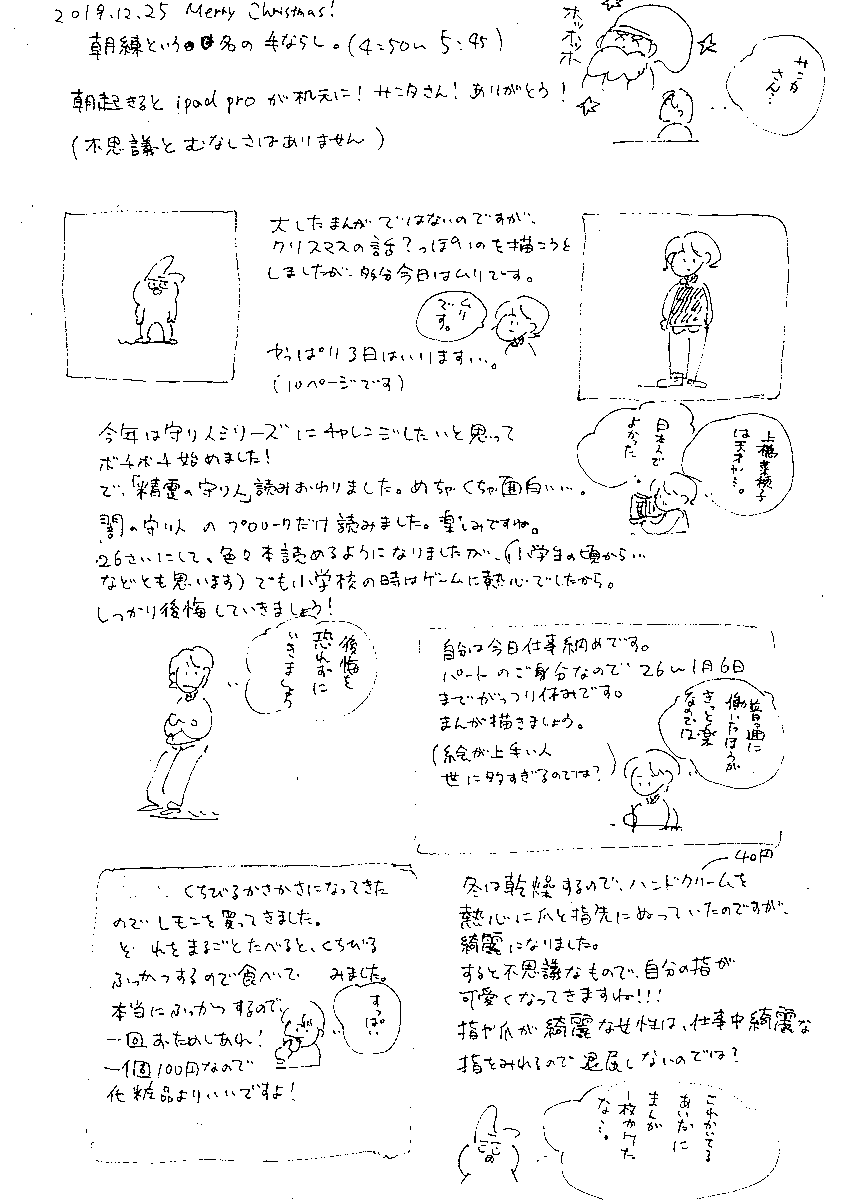 2019.12.25 Merry Christmas!
朝練という名の手ならし。(4:50〜5:45)
ホッホッホ
サンタ
さん…
朝起きると ipad pro が机元に! サンタさん! ありがとう!
(不思議とむなしさはありません)
大したまんがではないのですが、
クリスマスの話?っぽいのを描こうと
しましたが、多分今日はムリです。
ムリ
です。
やっぱり3日はいりますね…。
(10ページです)
今年は守り人シリーズにチャレンジしたいと思って
ボチボチ始めました!
で、「精霊の守り人」読みおわりました。めちゃくちゃ面白い…。
闇の守り人のプロローグだけ読みました。楽しみですね。
26さいにして、色々本読めるようになりましたが、(小学生の頃から…
などとも思います)でも小学校の時はゲームに熱心でしたから。
しっかり後悔していきましょう!
日本人で
よかった
上橋菜穂子
は天才や…。
後悔を
恐れずに
いきましょう
自分は今日仕事納めです。
パートのご身分なので26〜1月6日
までがっつり休みです。
まんが描きましょう。
(絵が上手い人
世に多すぎるのでは?)
普通に
働いたほうが
きっと楽
なのでは
くちびるかさかさになってきた
のでレモンを買ってきました。
それをまるごとたべると、くちびる
ふっかつするので食べてみました。
本当にふっかつするので
一回おためしあれ!
一個100円なので
化粧品よりいいですよ!
すっぱい
40円
冬は乾燥するので、ハンドクリームを
熱心に爪と指先にぬっていたのですが、
綺麗になりました。
すると不思議なもので、自分の指が
可愛くなってきますね!!!
指や爪が綺麗な女性は、仕事中綺麗な
指をみれるので退屈しないのでは?
これかいてる
あいだに
まんが
一枚かけた
な…。